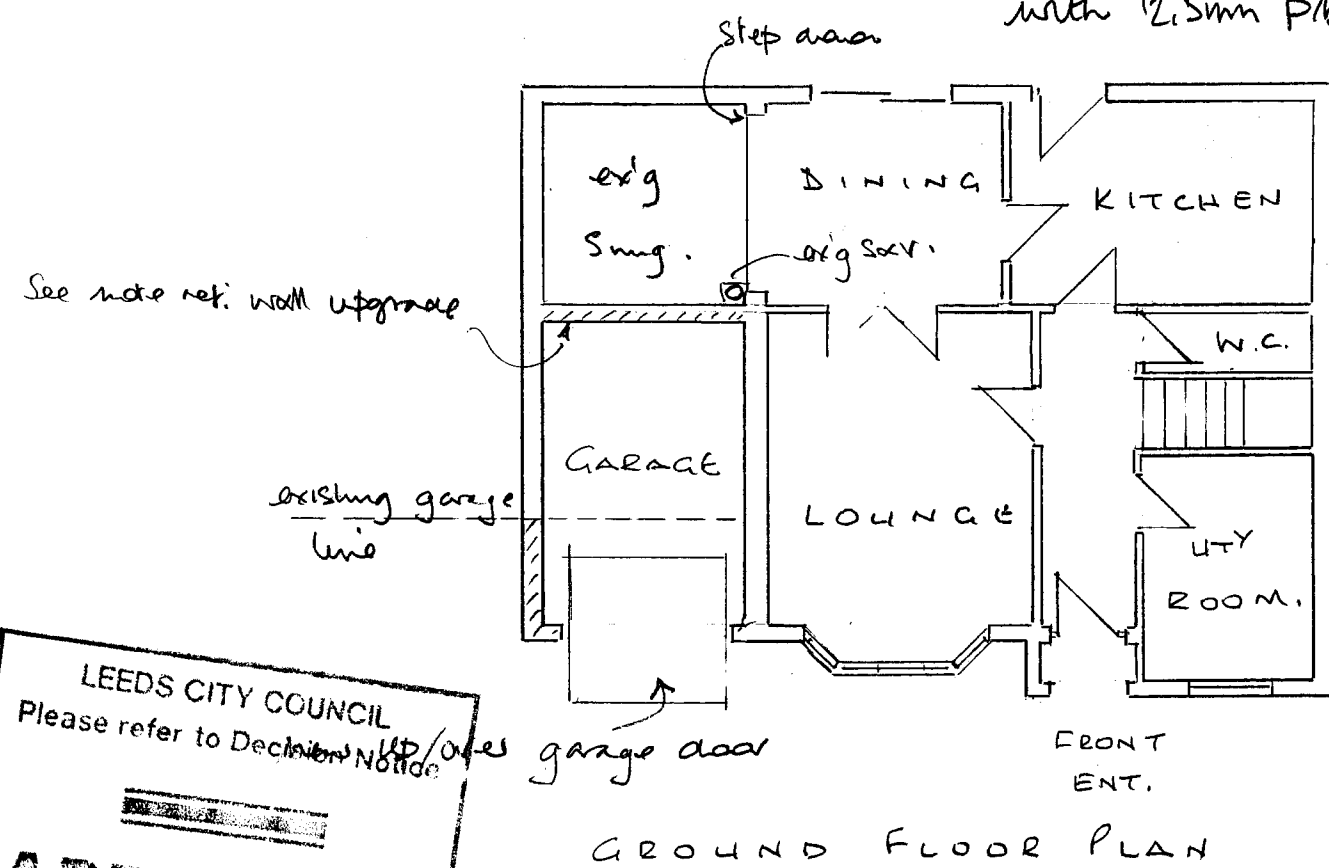 with 12.5mm
Step down
ex'g
Snug.
DINING
KITCHEN
ex'g s&v.
See note ref. wall upgrade
W.C.
GARAGE
existing garage
line
LOUNGE
UTY
ROOM.
LEEDS CITY COUNCIL
Please refer to Decision Notice
up/over garage door
FRONT
ENT.
GROUND FLOOR PLAN